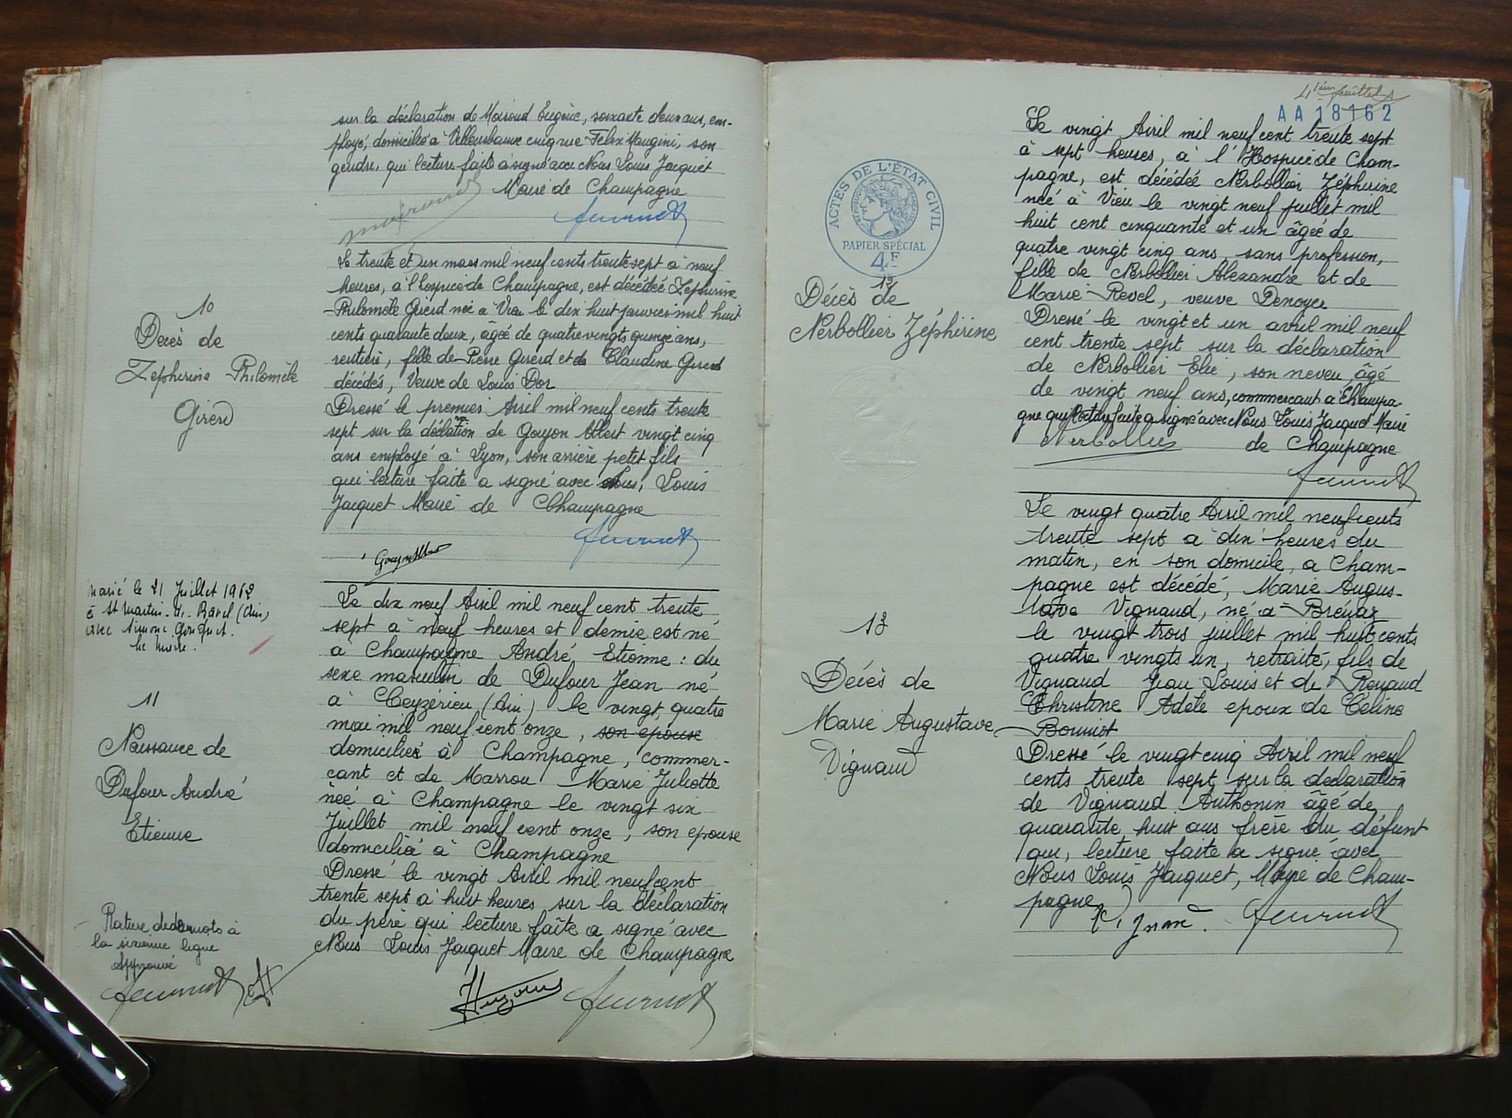 sur la déclaration de Moiroud Eugène, soixante deux ans, em-
ployé, domicilié à Villeurbanne cinq rue Félix Mangini, son
gendre, qui lecture faite a signé avec Nous Louis Jacquet
Maire de Champagne
10
Décès de
Zéphirine Philomèle
Girerd
Le trente et un mars mil neuf cents trente sept à neuf
heures, à l'hospice de Champagne, est décédée Zéphirine
Philomèle Girerd née à Vieu le dix huit janvier mil huit
cents quarante deux, âgée de quatre vingts quinze ans,
rentière, fille de Pierre Girerd et de Claudine Girerd
décédés, Veuve de Louis Dor
Dressé le premier Avril mil neuf cents trente
sept sur la déclation de Goujon Albert vingt cinq
ans employé à Lyon, son arrière petit fils
qui lecture faite a signé avec Nous, Louis
Jacquet Maire de Champagne
Marié le 21 Juillet 1962
à St Martin de Bavel (Ain)
avec Simone
le Maire.
11
Naissance de
Dufour André
Etienne
Le dix neuf Avril mil neuf cent trente
sept à neuf heures et demie est né
à Champagne André, Etienne : du
sexe masculin de Dufour Jean né
à Ceyzérieu (Ain) le vingt quatre
mai mil neuf cent onze, son epouse
domiciliés à Champagne, commer-
cant et de Marrou Marie Juliette
née à Champagne le vingt six
Juillet mil neuf cent onze, son epouse
domicilié à Champagne
Dressé le vingt Avril mil neuf cent
trente sept à huit heures sur la déclaration
du père qui lecture faîte a signé avec
Nous Louis Jacquet Maire de Champagne
Rature de deux mots à
la sixième ligne
Approuvé
4ième feuillet
AA 18162
ACTES DE L'ÉTAT CIVIL
PAPIER SPÉCIAL
4F
12
Décès de
Nerbollier Zéphirine
Le vingt Avril mil neuf cent trente sept
à sept heures, à l'Hospice de Cham-
pagne, est décédée Nerbollier Zéphirine
née à Vieu le vingt neuf juillet mil
huit cent cinquante et un âgée de
quatre vingt cinq ans sans profession,
fille de Nerbollier Alexandre et de
Marie Revel, veuve Denoyer
Dressé le vingt et un avril mil neuf
cent trente sept sur la déclaration
de Nerbollier Elie, son neveu âgé
de vingt neuf ans, commercant à Champa-
gne qui lecture faite a signé avec Nous Louis Jacquet Maire
Nerbollier de Champagne
13
Décès de
Marie Augustave
Vignaud
Le vingt quatre Avril mil neuf cents
trente sept à dix heures du
matin, en son domicile, a Cham-
pagne est décédé, Marie Augus-
tave Vignaud, né à Brénaz
le vingt trois juillet mil huit cents
quatre vingts un, retraité, fils de
Vignaud Jean Louis et de Renaud
Christine Adèle epoux de Céline
Bouvier
Dressé le vingt cinq Avril mil neuf
cents trente sept sur la declaration
de Vignaud Anthonin âgé de
quarante huit ans frère du défunt
qui, lecture faite a signé avec
Nous Louis Jacquet, Maire de Cham-
pagne